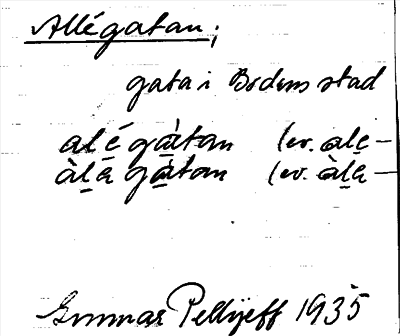 Allégatan;
gata i Bodens stad
alé̱ gà̱tan (ev. ale̱ –
àlä̱ gà̱tan (ev. àlä̱ –
Gunnar Pellijeff 1935